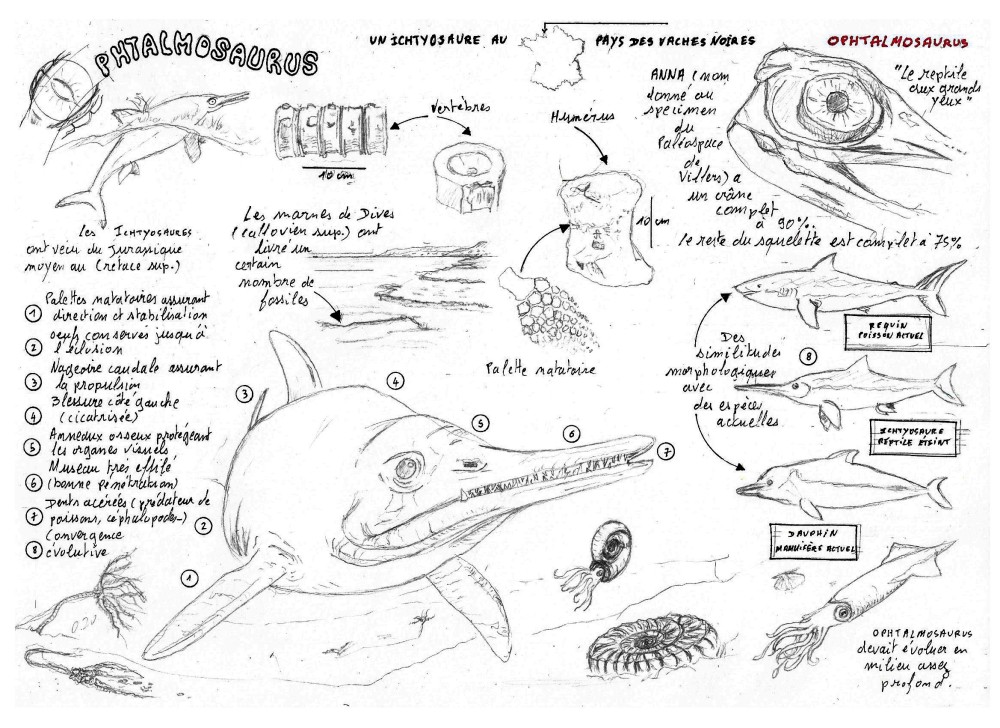 OPHTALMOSAURUS
UN ICHTYOSAURE AU PAYS DES VACHES NOIRES
OPHTALMOSAURUS
"Le reptile
aux grands
yeux"
ANNA (nom
donné au
specimen
du
Paléospace
de
Villers) a
un crâne
complet
à 90%.
le reste du squelette est complet à 75%
Vertèbres
10 cm
Humérus
10 cm
Les marnes de Dives
(callovien sup.) ont
livré un
certain
nombre de
fossiles
Palette natatoire
les ICHTYOSAURES
ont vécu du Jurassique
moyen au Crétacé sup.)
1 Palettes natatoires assurant
direction et stabilisation
2 oeufs conservés jusqu'à
l'éclosion
3 Nageoire caudale assurant
la propulsion
4 Blessure côté gauche
(cicatrisée)
5 Anneaux osseux protégeant
les organes visuels
6 Museau très effilé
(bonne pénétration)
7 Dents acérées (prédateur de
poissons, céphalopodes..)
8 Convergence
évolutive
1
2
3
4
5
6
7
8
Des
similitudes
morphologiques
avec
des espèces
actuelles.
REQUIN
POISSON ACTUEL
ICHTYOSAURE
REPTILE ÉTEINT
DAUPHIN
MAMMIFÈRE ACTUEL
OPHTALMOSAURUS
devait évoluer en
milieu assez
profond.